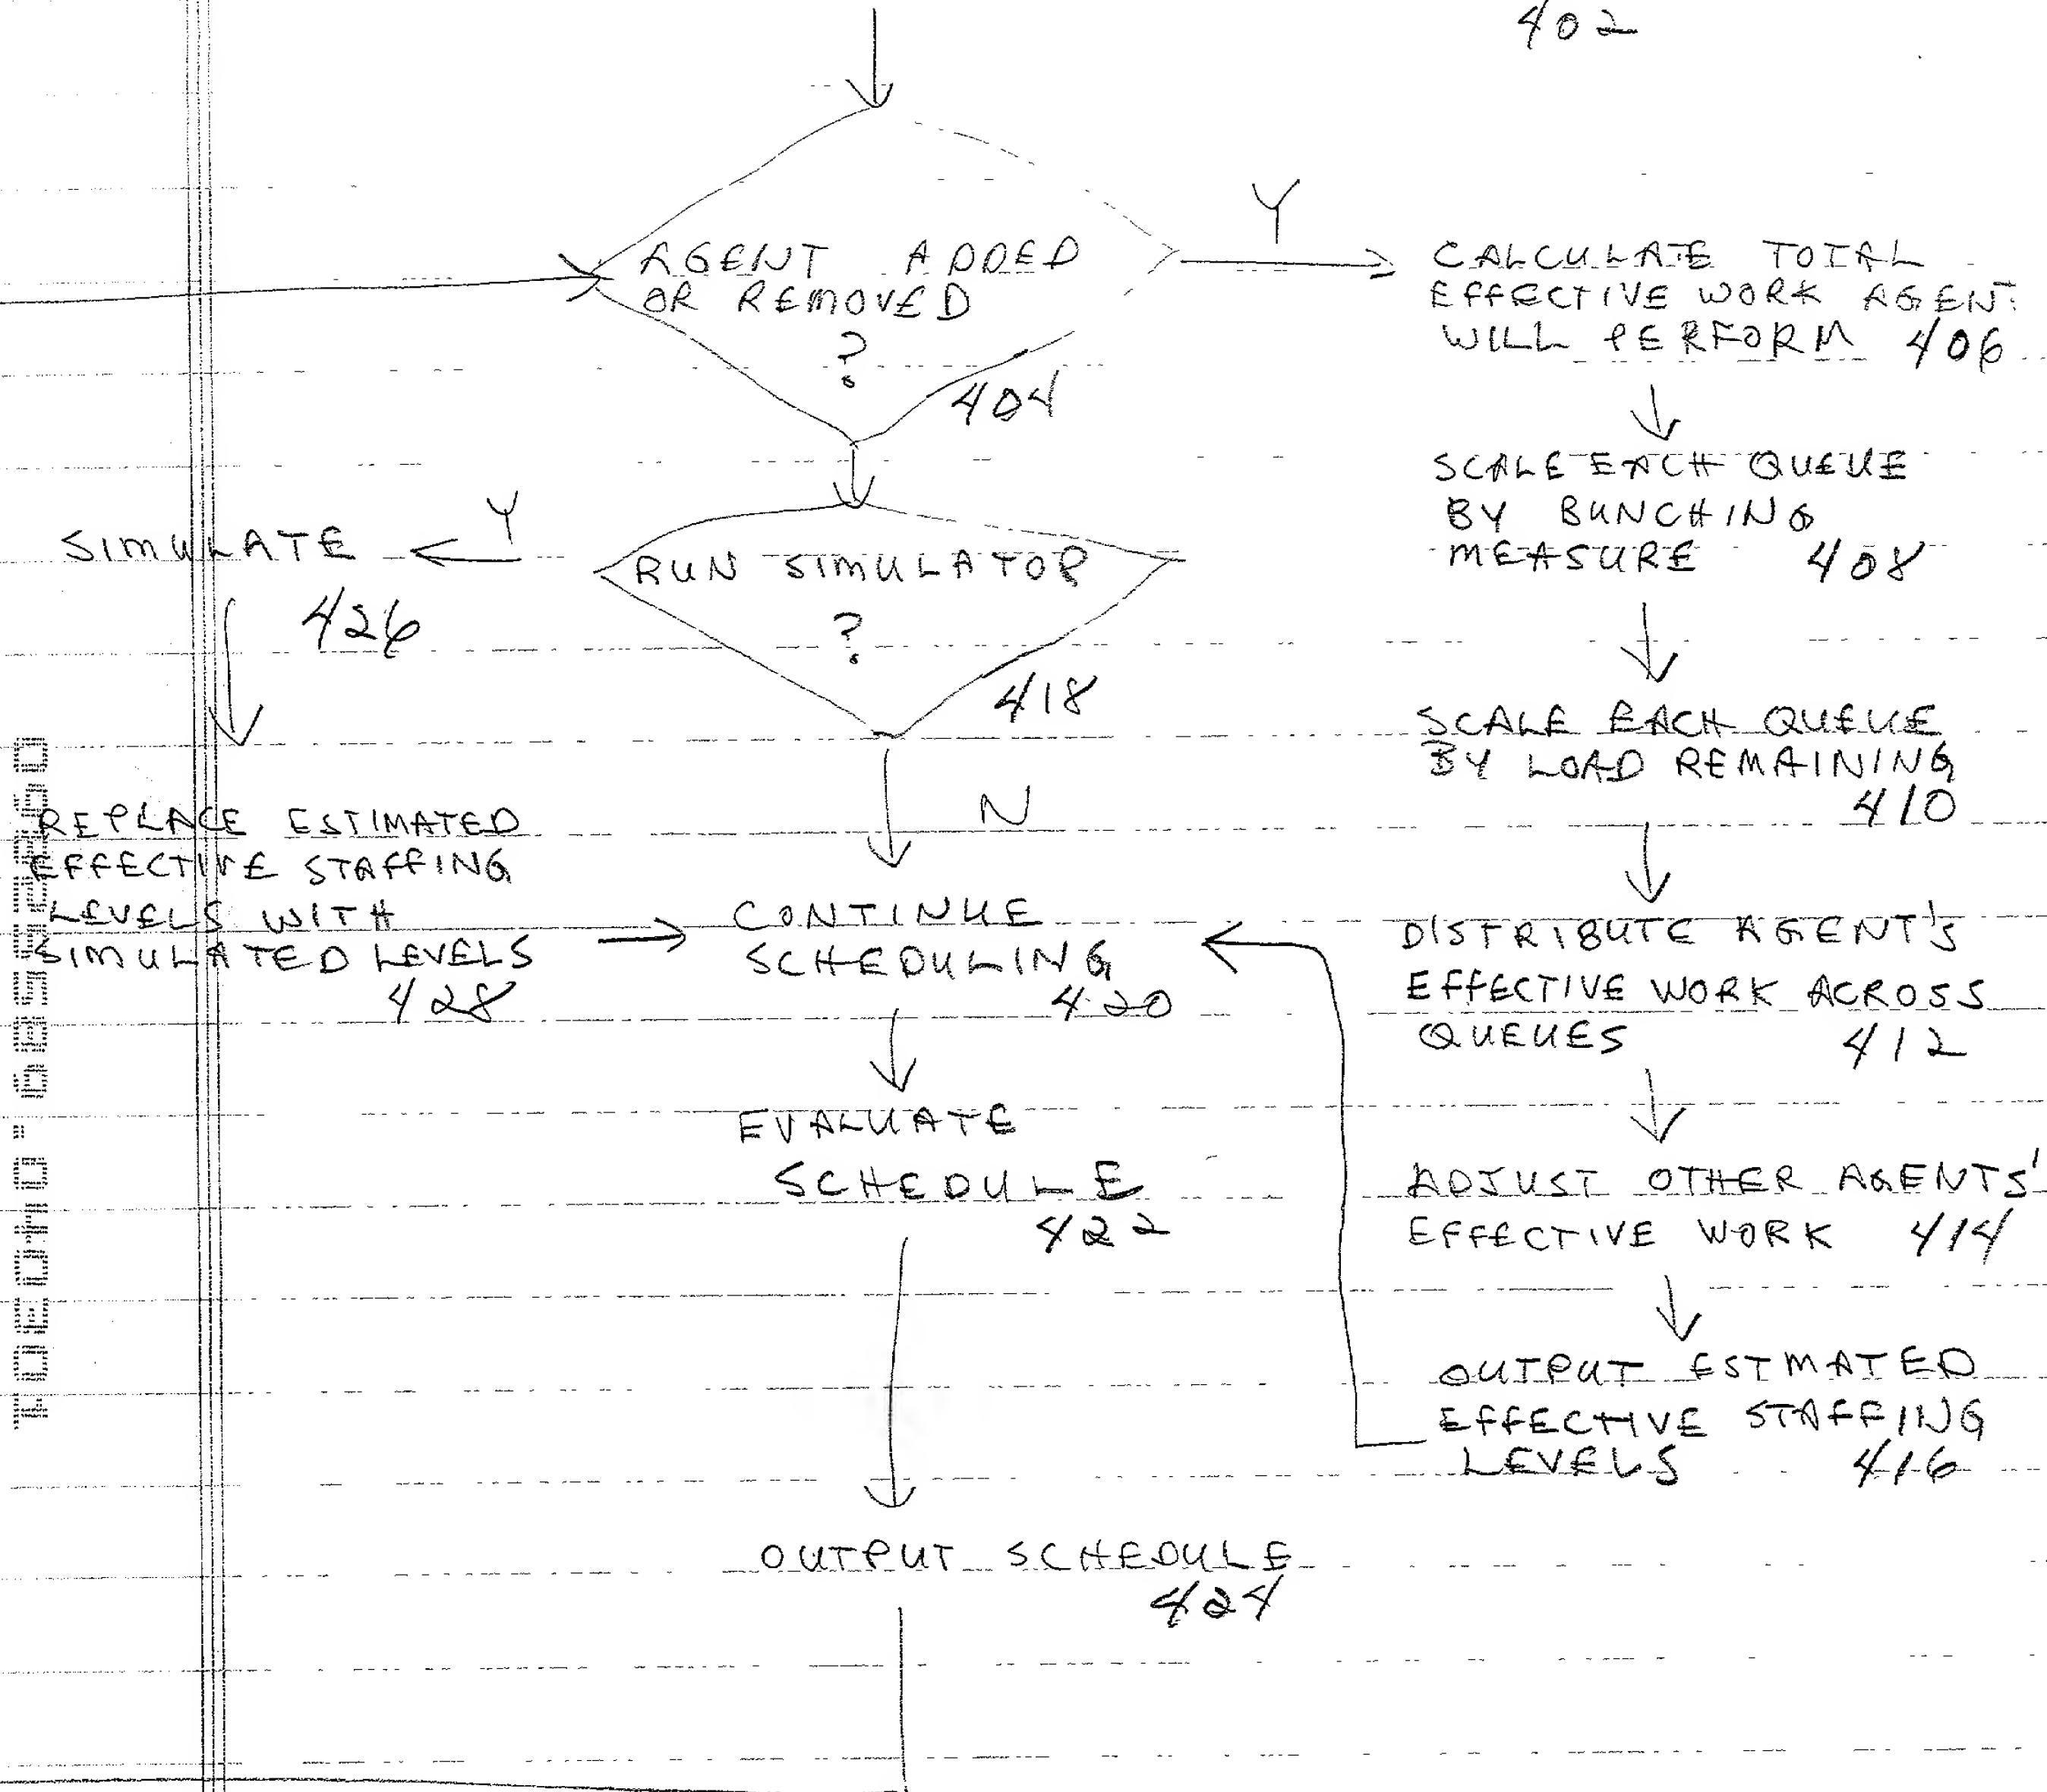 402
AGENT ADDED
OR REMOVED
?
404
Y
CALCULATE TOTAL
EFFECTIVE WORK AGENT
WILL PERFORM 406
SCALE EACH QUEUE
BY BUNCHING
MEASURE 408
SCALE EACH QUEUE
BY LOAD REMAINING
410
DISTRIBUTE AGENT'S
EFFECTIVE WORK ACROSS
QUEUES 412
ADJUST OTHER AGENTS'
EFFECTIVE WORK 414
OUTPUT ESTMATED
EFFECTIVE STAFFING
LEVELS 416
RUN SIMULATOR
?
418
Y
SIMULATE
426
REPLACE ESTIMATED
EFFECTIVE STAFFING
LEVELS WITH
SIMULATED LEVELS
428
N
CONTINUE
SCHEDULING
420
EVALUATE
SCHEDULE
422
OUTPUT SCHEDULE
424